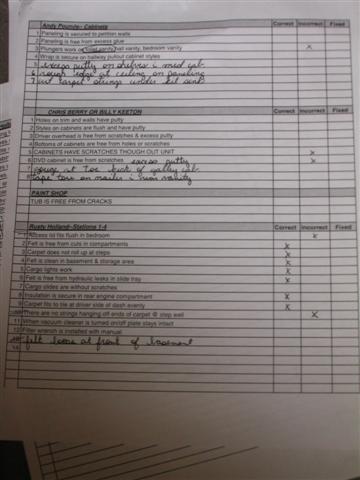 Andy Pounds- Cabinets Correct Incorrect Fixed
1 Paneling is secured to petition walls
2 Paneling is free from excess glue
3 Plungers work on toilet vanity, hall vanity, bedroom vanity X
4 Wrap is secure on hallway pullout cabinet styles
5 excess putty on shelves
6 rough edge at ceiling on paneling
7 cut carpet strings under
CHRIS BERRY OR BILLY KEETON Correct Incorrect Fixed
1 Holes on trim and walls have putty
2 Styles on cabinets are flush and have putty
3 Driver overhead is free from scratches & excess putty
4 Bottoms of cabinets are free from holes or scratches
5 CABINETS HAVE SCRATCHES THOUGH OUT UNIT X
6 DVD cabinet is free from scratches excess putty X
gouge at toe kick of galley cab
tape tore on
PAINT SHOP
TUB IS FREE FROM CRACKS
Rusty Holland--Stations 1-4 Correct Incorrect Fixed
1 Access lid fits flush in bedroom X
2 Felt is free from cuts in compartments X
3 Carpet does not roll up at steps X
4 Felt is clean in basement & storage area X
5 Cargo lights work X
6 Felt is free from hydraulic leaks in slide tray X
7 Cargo slides are without scratches
8 Insulation is secure in rear engine compartment X
9 Carpet fits to tie at driver side of dash evenly X
There are no strings hanging off ends of carpet @ step well X
11 When vacuum cleaner is turned on/off plate stays intact
12 Filter wrench is installed with manual
felt loose at front of basement
14